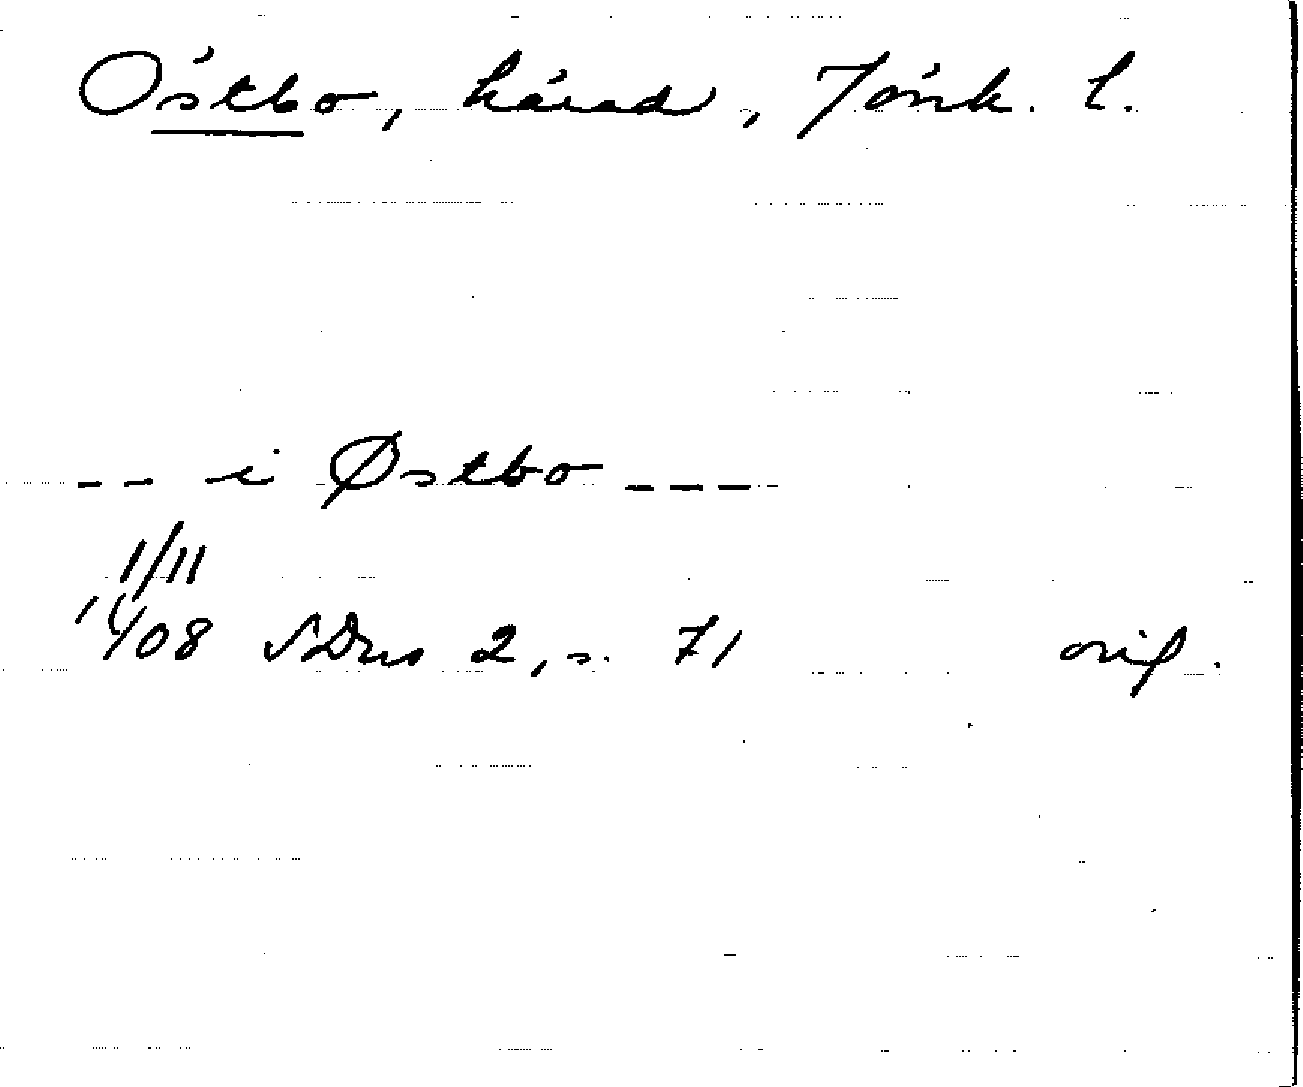 Östbo, härad, Jönk. l.
-- i Østbo ---
1/11
1408 SDns 2, s. 71 orig.